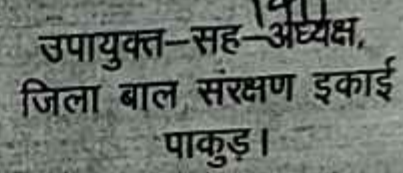 उपायुक्त-सह-अध्यक्ष,
जिला बाल संरक्षण इकाई
पाकुड़।